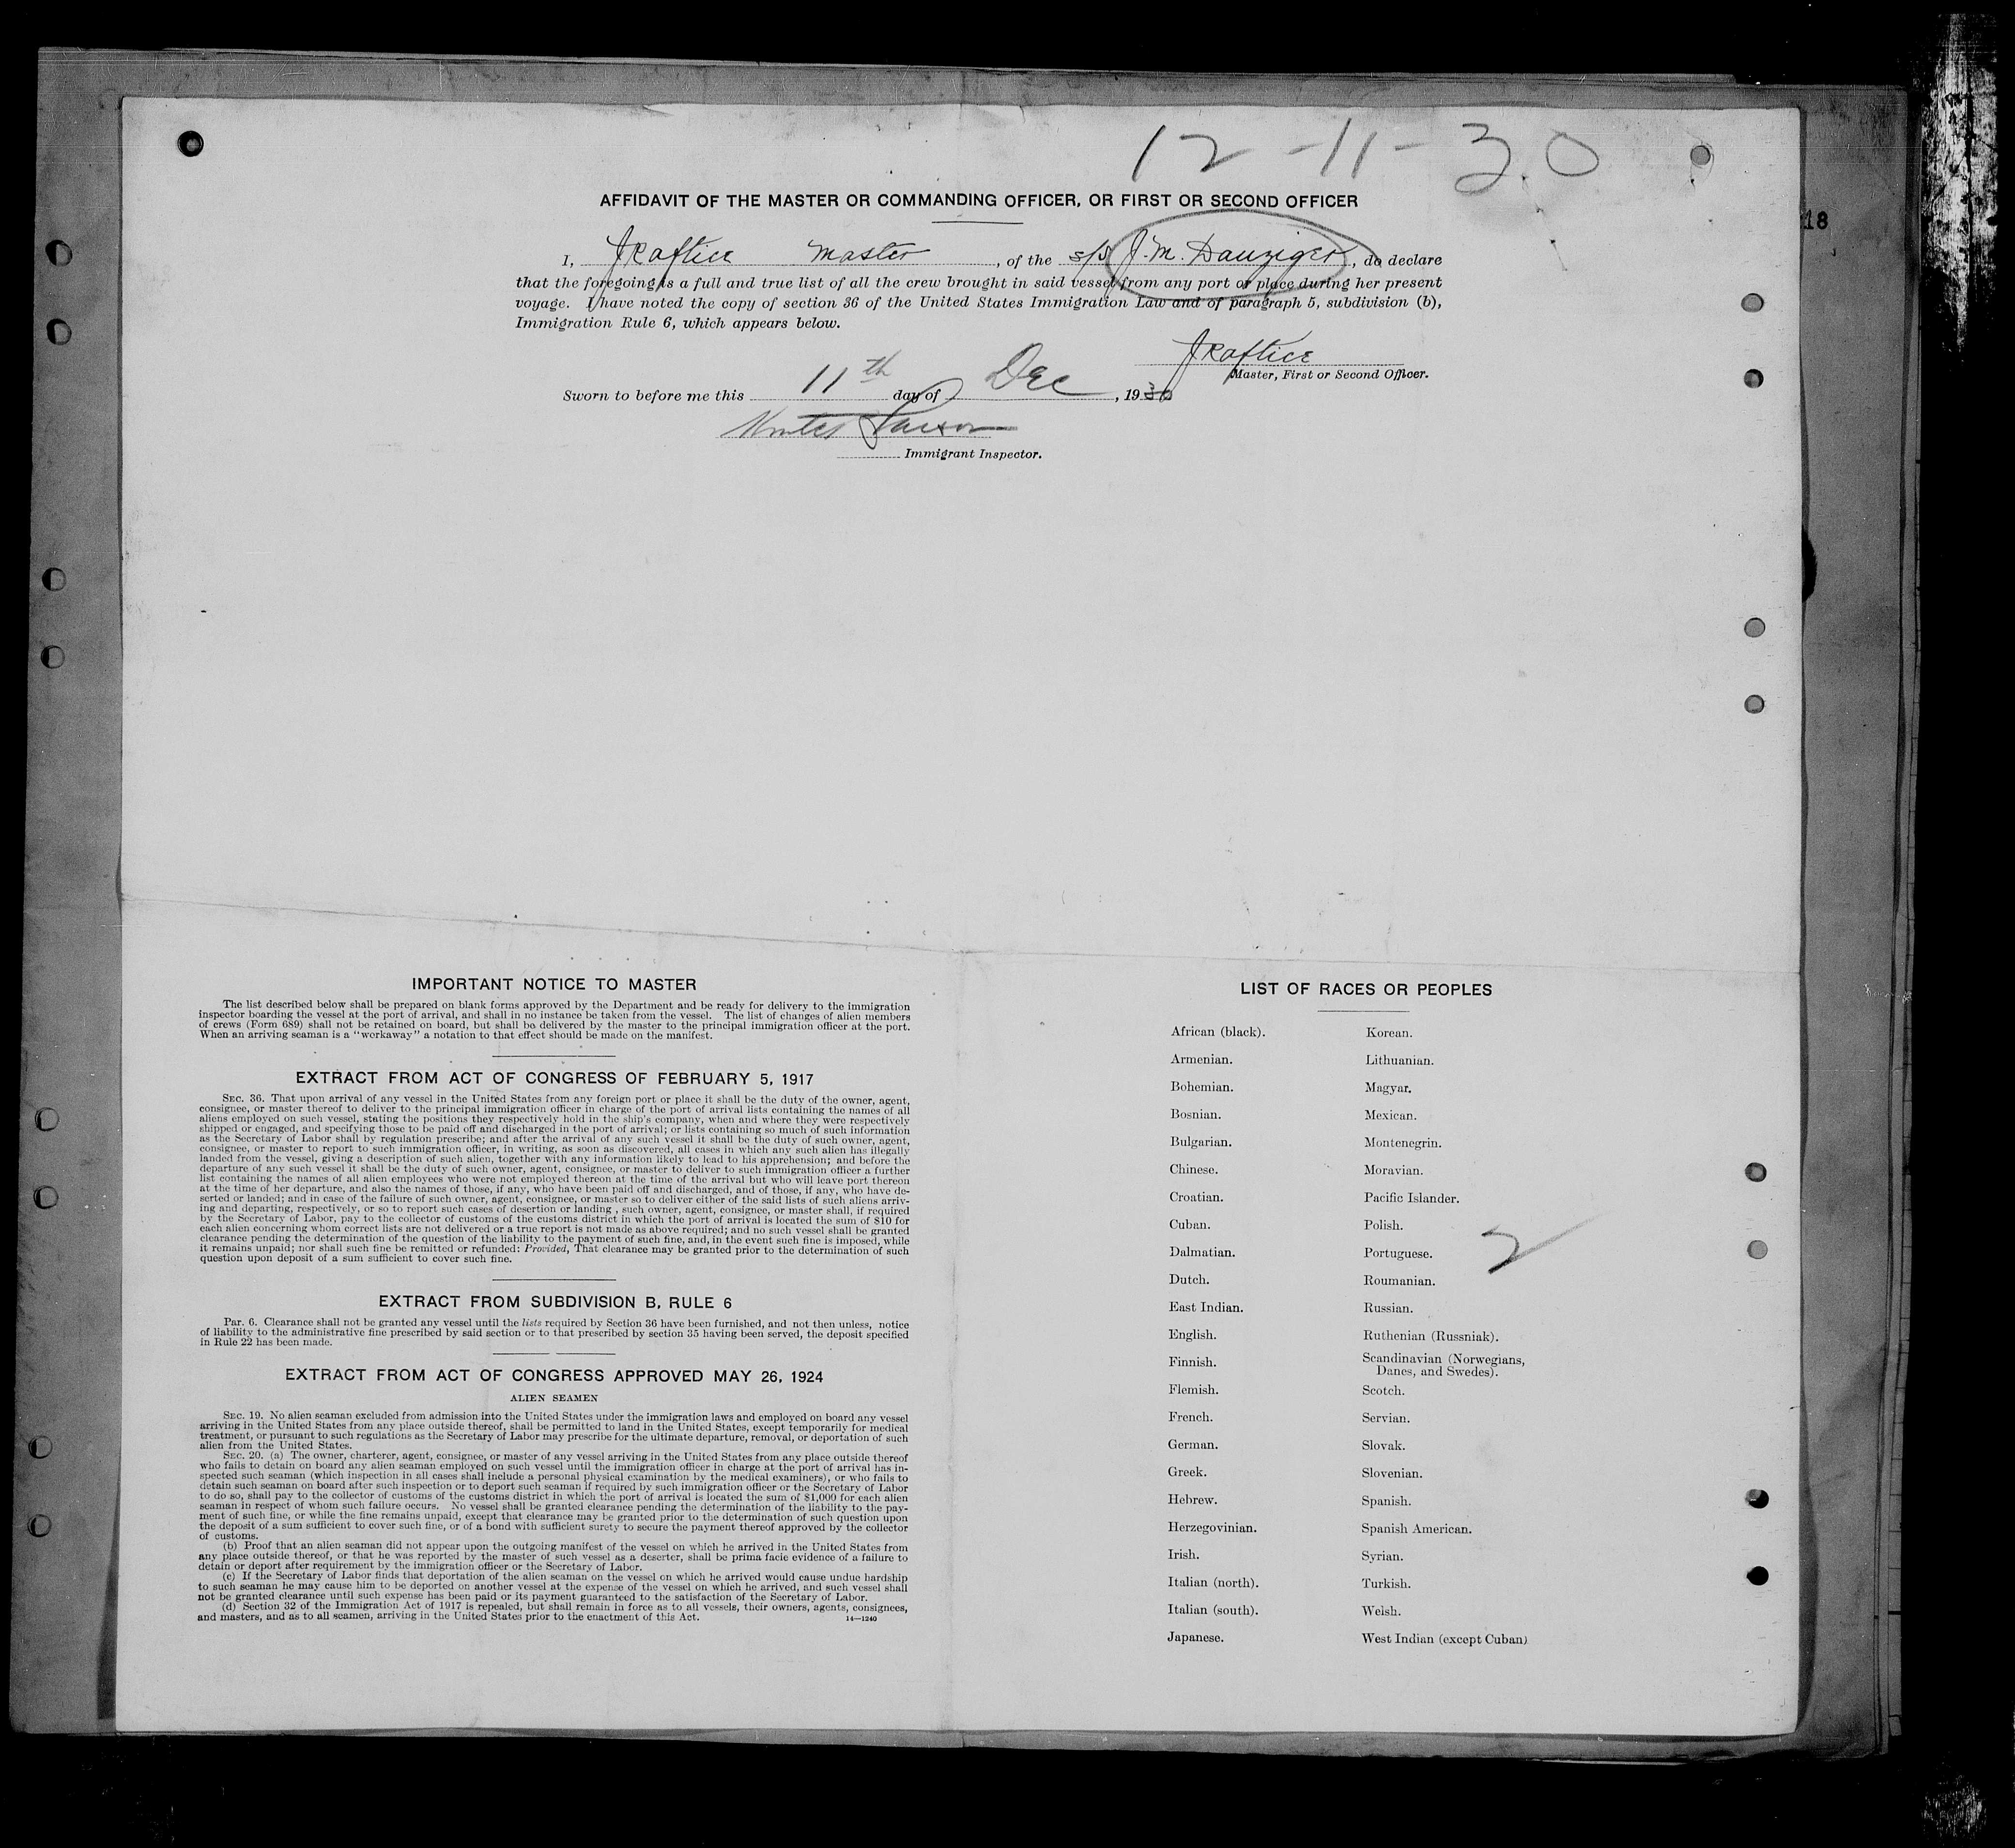 12-11-30
18
AFFIDAVIT OF THE MASTER OR COMMANDING OFFICER, OR FIRST OR SECOND OFFICER
I, master, of the s/s J. M. Danziger, do declare
that the foregoing is a full and true list of all the crew brought in said vessel from any port or place during her present
voyage. I have noted the copy of section 36 of the United States Immigration Law and of paragraph 5, subdivision (b),
Immigration Rule 6, which appears below.
Master, First or Second Officer.
Sworn to before me this 11th day of Dec, 1930
Immigrant Inspector.
IMPORTANT NOTICE TO MASTER
The list described below shall be prepared on blank forms approved by the Department and be ready for delivery to the immigration
inspector boarding the vessel at the port of arrival, and shall in no instance be taken from the vessel. The list of changes of alien members
of crews (Form 689) shall not be retained on board, but shall be delivered by the master to the principal immigration officer at the port.
When an arriving seaman is a "workaway" a notation to that effect should be made on the manifest.
EXTRACT FROM ACT OF CONGRESS OF FEBRUARY 5, 1917
SEC. 36. That upon arrival of any vessel in the United States from any foreign port or place it shall be the duty of the owner, agent,
consignee, or master thereof to deliver to the principal immigration officer in charge of the port of arrival lists containing the names of all
aliens employed on such vessel, stating the positions they respectively hold in the ship's company, when and where they were respectively
shipped or engaged, and specifying those to be paid off and discharged in the port of arrival; or lists containing so much of such information
as the Secretary of Labor shall by regulation prescribe; and after the arrival of any such vessel it shall be the duty of such owner, agent,
consignee, or master to report to such immigration officer, in writing, as soon as discovered, all cases in which any such alien has illegally
landed from the vessel, giving a description of such alien, together with any information likely to lead to his apprehension; and before the
departure of any such vessel it shall be the duty of such owner, agent, consignee, or master to deliver to such immigration officer a further
list containing the names of all alien employees who were not employed thereon at the time of the arrival but who will leave port thereon
at the time of her departure, and also the names of those, if any, who have been paid off and discharged, and of those, if any, who have de-
serted or landed; and in case of the failure of such owner, agent, consignee, or master so to deliver either of the said lists of such aliens arriv-
ing and departing, respectively, or so to report such cases of desertion or landing , such owner, agent, consignee, or master shall, if required
by the Secretary of Labor, pay to the collector of customs of the customs district in which the port of arrival is located the sum of $10 for
each alien concerning whom correct lists are not delivered or a true report is not made as above required; and no such vessel shall be granted
clearance pending the determination of the question of the liability to the payment of such fine, and, in the event such fine is imposed, while
it remains unpaid; nor shall such fine be remitted or refunded: Provided, That clearance may be granted prior to the determination of such
question upon deposit of a sum sufficient to cover such fine.
EXTRACT FROM SUBDIVISION B, RULE 6
Par. 6. Clearance shall not be granted any vessel until the lists required by Section 36 have been furnished, and not then unless, notice
of liability to the administrative fine prescribed by said section or to that prescribed by section 35 having been served, the deposit specified
in Rule 22 has been made.
EXTRACT FROM ACT OF CONGRESS APPROVED MAY 26, 1924
ALIEN SEAMEN
SEC. 19. No alien seaman excluded from admission into the United States under the immigration laws and employed on board any vessel
arriving in the United States from any place outside thereof, shall be permitted to land in the United States, except temporarily for medical
treatment, or pursuant to such regulations as the Secretary of Labor may prescribe for the ultimate departure, removal, or deportation of such
alien from the United States.
SEC. 20. (a) The owner, charterer, agent, consignee, or master of any vessel arriving in the United States from any place outside thereof
who fails to detain on board any alien seaman employed on such vessel until the immigration officer in charge at the port of arrival has in-
spected such seaman (which inspection in all cases shall include a personal physical examination by the medical examiners), or who fails to
detain such seaman on board after such inspection or to deport such seaman if required by such immigration officer or the Secretary of Labor
to do so, shall pay to the collector of customs of the customs district in which the port of arrival is located the sum of $1,000 for each alien
seaman in respect of whom such failure occurs. No vessel shall be granted clearance pending the determination of the liability to the pay-
ment of such fine, or while the fine remains unpaid, except that clearance may be granted prior to the determination of such question upon
the deposit of a sum sufficient to cover such fine, or of a bond with sufficient surety to secure the payment thereof approved by the collector
of customs.
(b) Proof that an alien seaman did not appear upon the outgoing manifest of the vessel on which he arrived in the United States from
any place outside thereof, or that he was reported by the master of such vessel as a deserter, shall be prima facie evidence of a failure to
detain or deport after requirement by the immigration officer or the Secretary of Labor.
(c) If the Secretary of Labor finds that deportation of the alien seaman on the vessel on which he arrived would cause undue hardship
to such seaman he may cause him to be deported on another vessel at the expense of the vessel on which he arrived, and such vessel shall
not be granted clearance until such expense has been paid or its payment guaranteed to the satisfaction of the Secretary of Labor.
(d) Section 32 of the Immigration Act of 1917 is repealed, but shall remain in force as to all vessels, their owners, agents, consignees,
and masters, and as to all seamen, arriving in the United States prior to the enactment of this Act.
14—1240
LIST OF RACES OR PEOPLES
African (black).
Armenian.
Bohemian.
Bosnian.
Bulgarian.
Chinese.
Croatian.
Cuban.
Dalmatian.
Dutch.
East Indian.
English.
Finnish.
Flemish.
French.
German.
Greek.
Hebrew.
Herzegovinian.
Irish.
Italian (north).
Italian (south).
Japanese.
Korean.
Lithuanian.
Magyar.
Mexican.
Montenegrin.
Moravian.
Pacific Islander.
Polish.
Portuguese.
Roumanian.
Russian.
Ruthenian (Russniak).
Scandinavian (Norwegians,
Danes, and Swedes).
Scotch.
Servian.
Slovak.
Slovenian.
Spanish.
Spanish American.
Syrian.
Turkish.
Welsh.
West Indian (except Cuban)
2